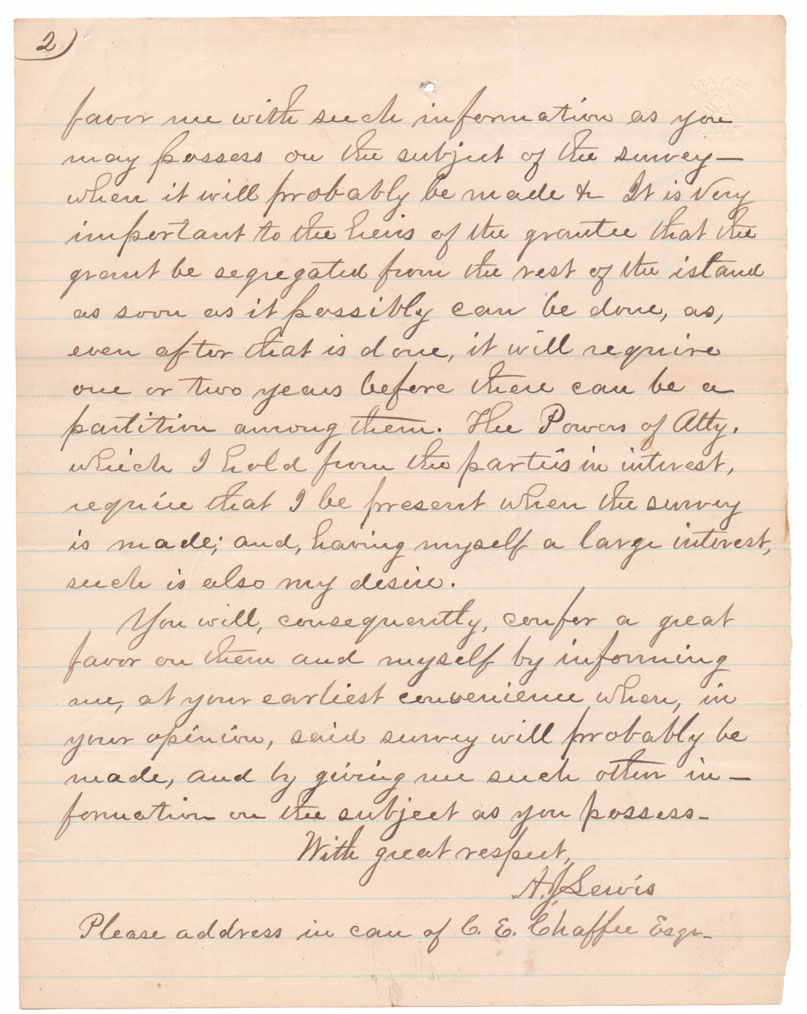 2)
favor me with such information as you
may possess on the subject of the survey—
when it will probably be made & It is very
important to the heirs of the grantee that the
grant be segregated from the rest of the island
as soon as it possibly can be done, as,
even after that is done, it will require
one or two years before there can be a
partition among them. The Powers of Atty.
which I hold from the parties in interest,
require that I be present when the survey
is made; and, having myself a large interest,
such is also my desire.
You will, consequently, confer a great
favor on them and myself by informing
me, at your earliest convenience when, in
your opinion, said survey will probably be
made, and by giving me such other in—
formation on the subject as you possess—
With great respect,
A. J. Lewis
Please address in care of C. E. Chaffee Esqr—